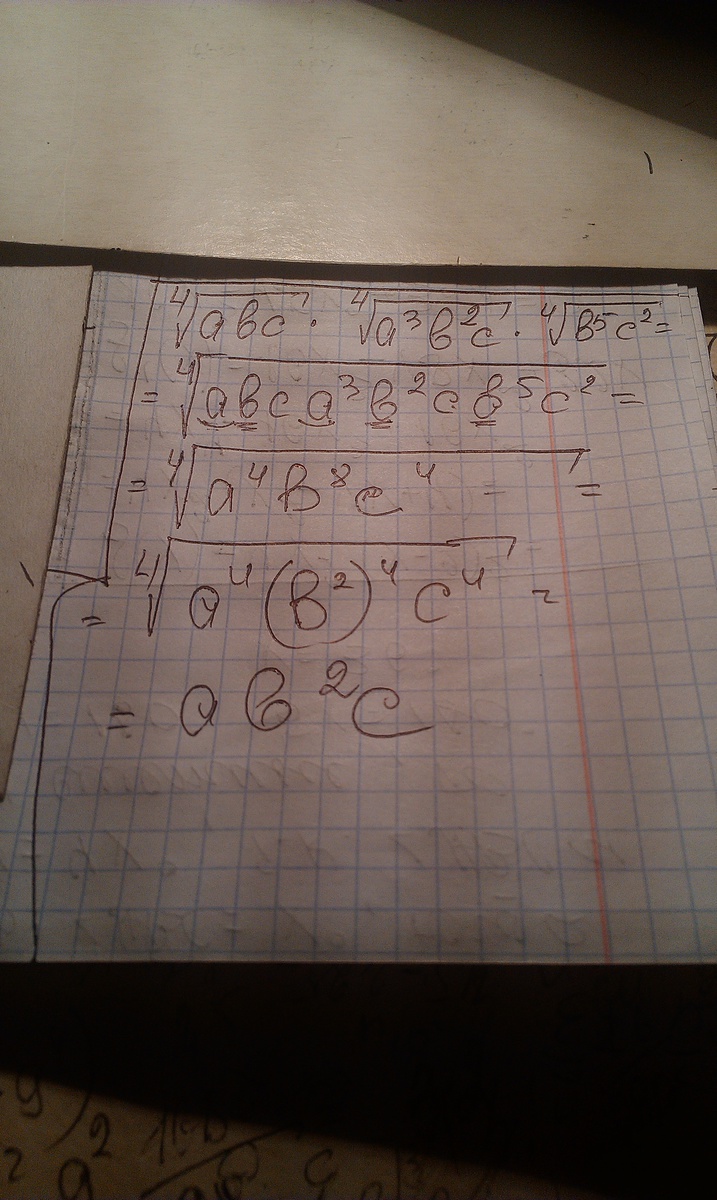 ⁴√abc · ⁴√a³b²c · ⁴√b⁵c² =
= ⁴√abca³b²cb⁵c² =
= ⁴√a⁴b⁸c⁴ =
= ⁴√a⁴(b²)⁴c⁴ =
= ab²c